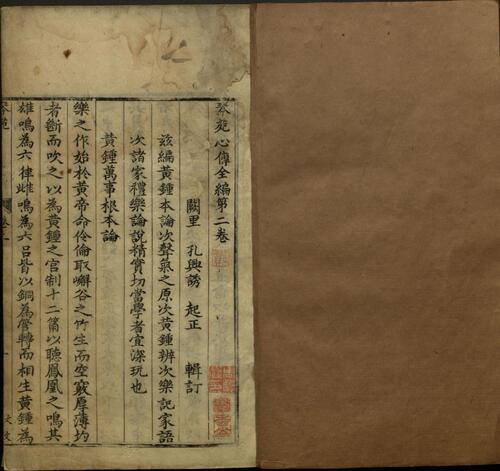 琴苑心傳全編第二卷
闕里 孔興誘 起正 輯訂
茲編黃鍾本論次聲氣之原次黃鍾辨次樂記家語
次諸家禮樂論說精實切當學者宜深玩也
黃鍾萬事根本論
樂之作始於黃帝命伶倫取嶰谷之竹生而空竅厚薄均
者斷而吹之以為黃鍾之宮制十二筩以聽鳳凰之鳴其
雄鳴為六律雌鳴為六呂皆以銅為管轉而相生黃鍾為
琴苑